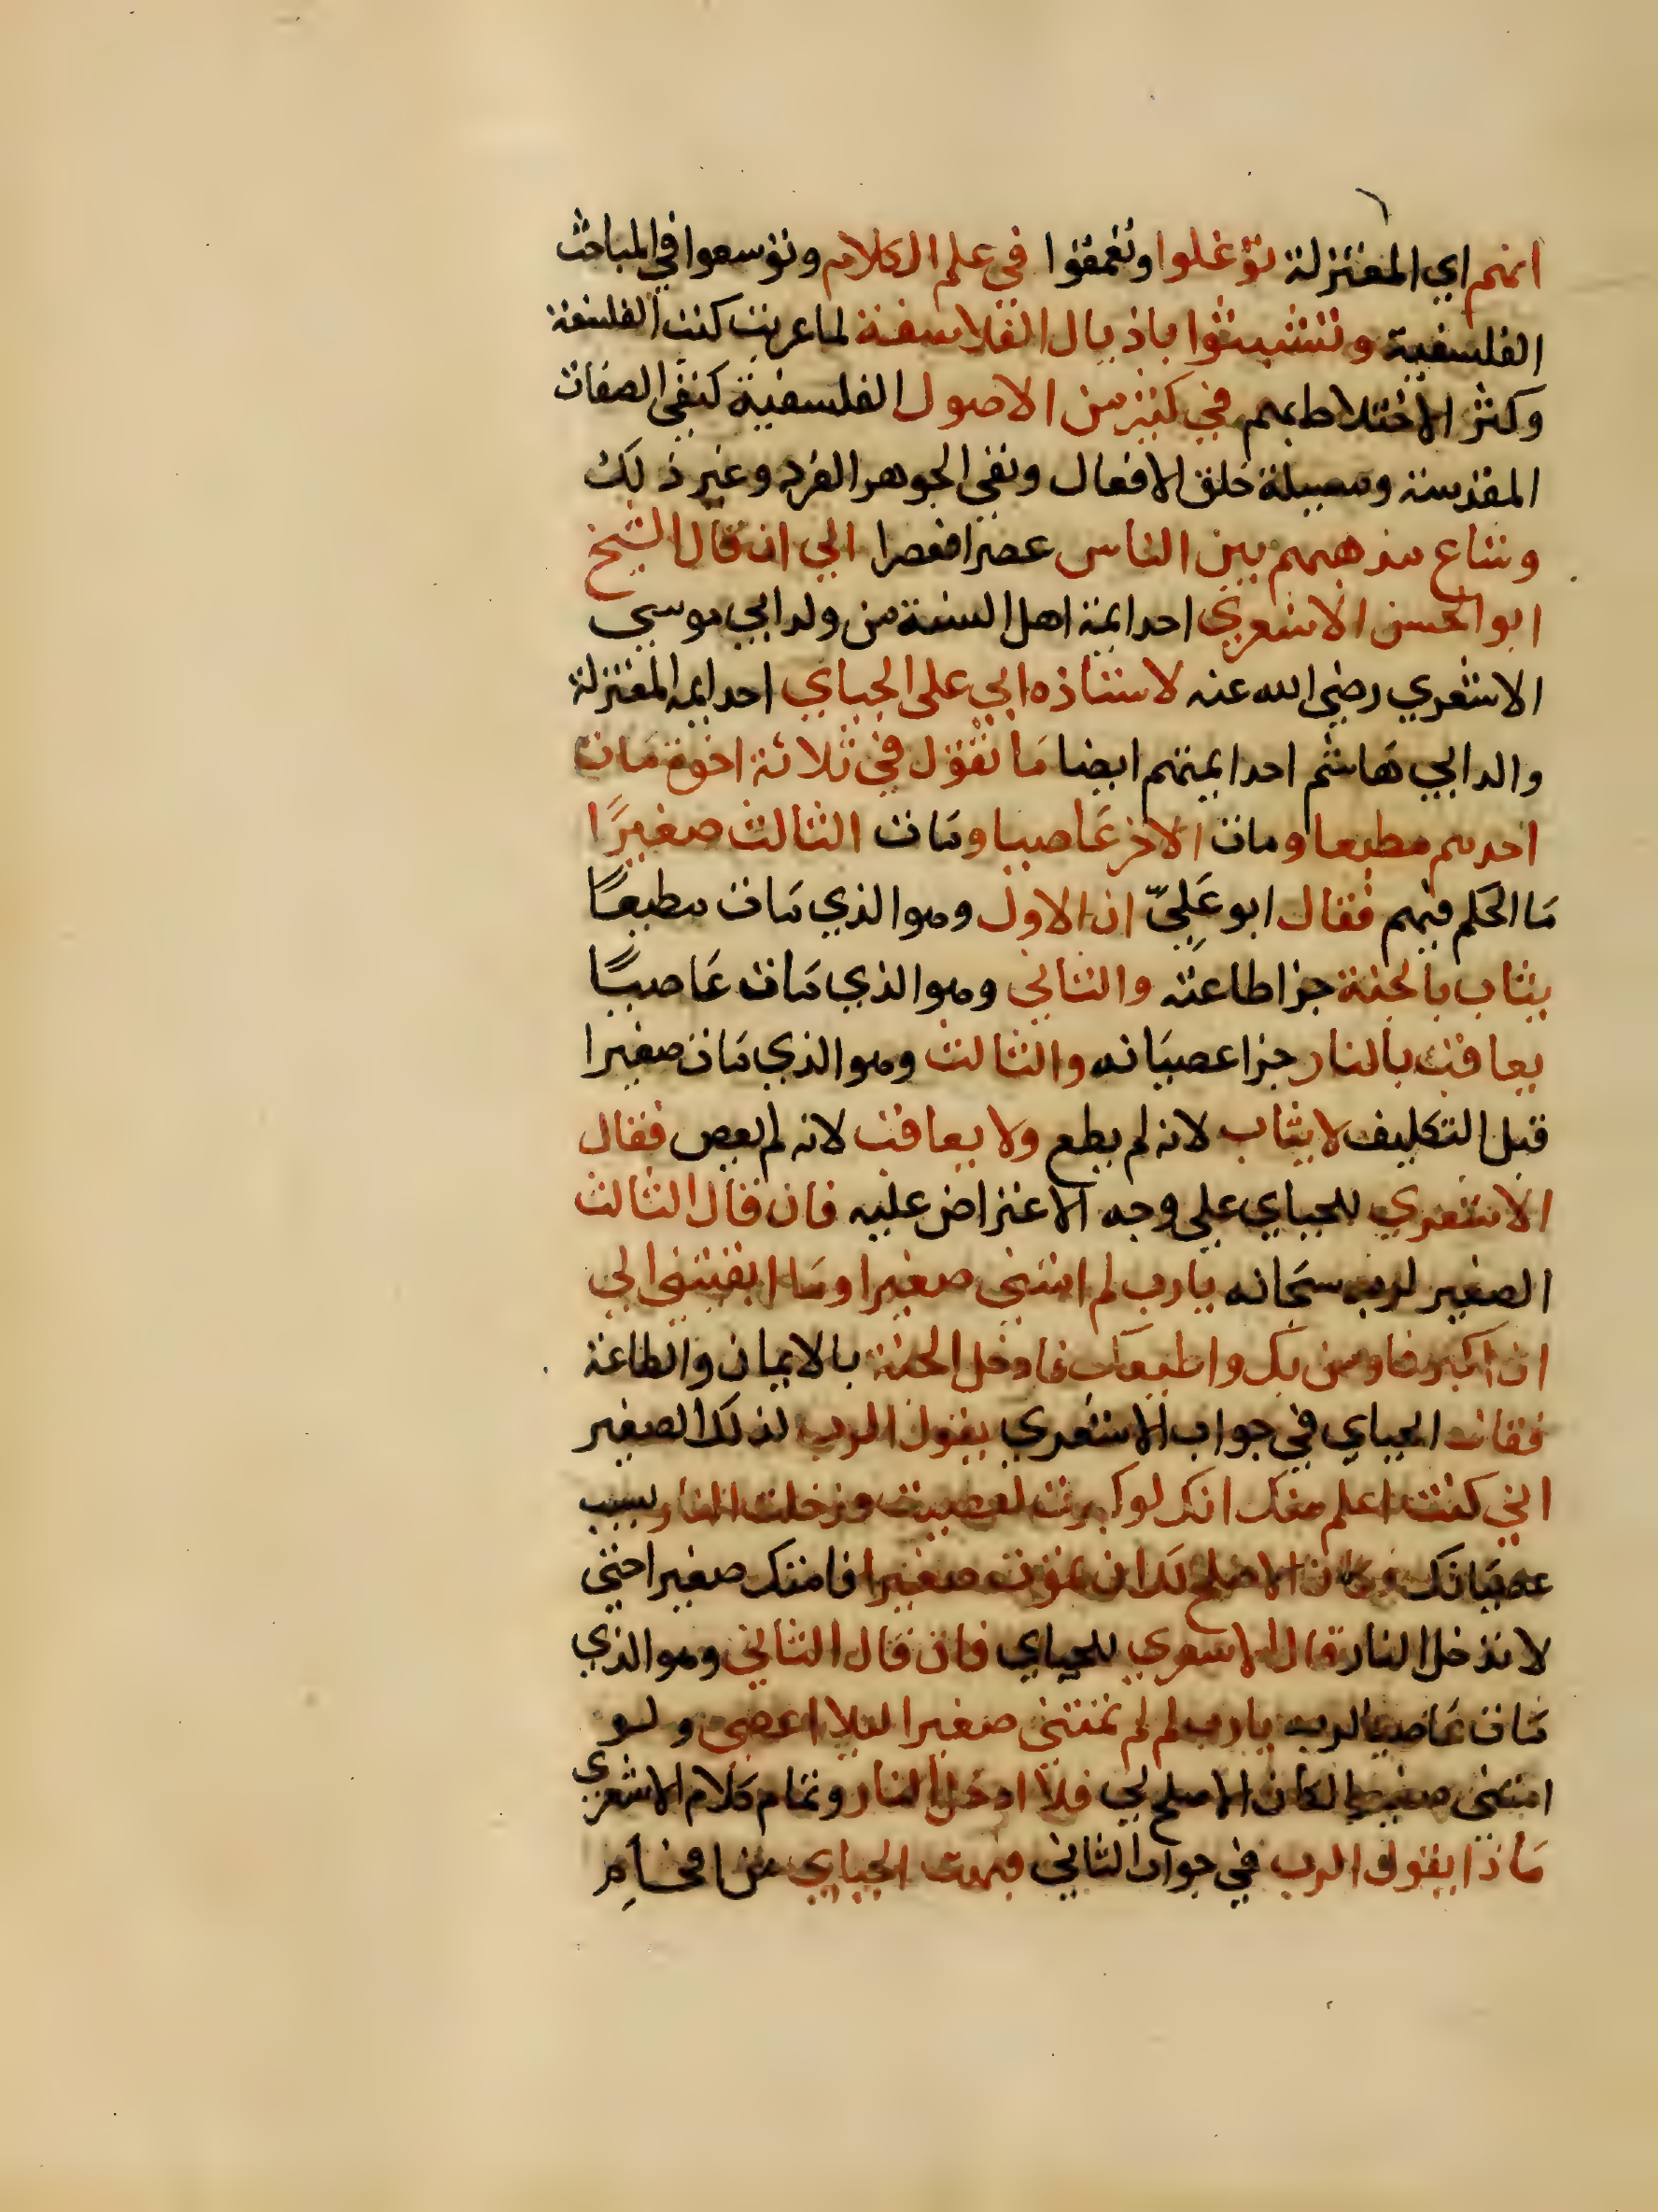 انهم اي المعتزلة توغلوا وتعمقوا في علم الكلام وتوسعوا في المباحث
الفلسفية وتشبثوا باذيال الفلاسفة لما عربت كتب الفلسفة
وكثر الاختلاط بهم في كثير من الاصول الفلسفية كنفي الصفات
المقدسة ومسيلة خلق الافعال ونفي الجوهر الفرد وغير ذلك
وشاع مذهبهم بين الناس عصرا فعصرا الي ان قال الشيخ
ابو الحسن الاشعري احد ايمة اهل السنة من ولد ابي موسي
الاشعري رضي الله عنه لاستاذه ابي علي الجباي احد ايمه المعتزلة
والد ابي هاشم احد ايمتهم ايضا ما تقول في ثلاثة اخوة مات
احدهم مطيعا ومات الاخر عاصيا ومات الثالث صغيرًا
مَا الحكم فيهم فقال ابو عَلِيّ ان الاول وهو الذي مات مطيعًا
يثاب بالجنة جزا طاعته والثاني وهو الذي مات عَاصيًا
يعاقب بالنار جزا عصيَانه والثالث وهو الذي مات صغيرا
قبل التكليف لا يثاب لانه لم يطع ولا يعاقب لانه لم يعص فقال
الاشعري للجباي علي وجه الاعتراض عليه فان قال الثالث
الصغير لربه سبحانه يا رب لم امتني صغيرا وما ابقيتني الي
ان اكبر فاومن بك واطيعك فادخل الجنة بالايمان والطاعة
فقال الجباي في جواب الاشعري يقول الرب لذلك الصغير
اني كنت اعلم منك انك لو كبرت لعصيت ودخلت النار بسبب
عصيَانك فكان الاصلح لك ان تموت صغيرا فامتك صغيرا حتي
لا تدخل النار قال الاشعري للجباي فان قال الثاني وهو الذي
مات عاصيا لربه يا رب لم لم تمتني صغيرا ليلا اعصي ولو
امتني صغيرا لكان الاصلح لي فلا ادخل النار وتمام كلام الاشعري
مَاذا يقول الرب في جواب الثاني فبهت الجباي عن افحَام